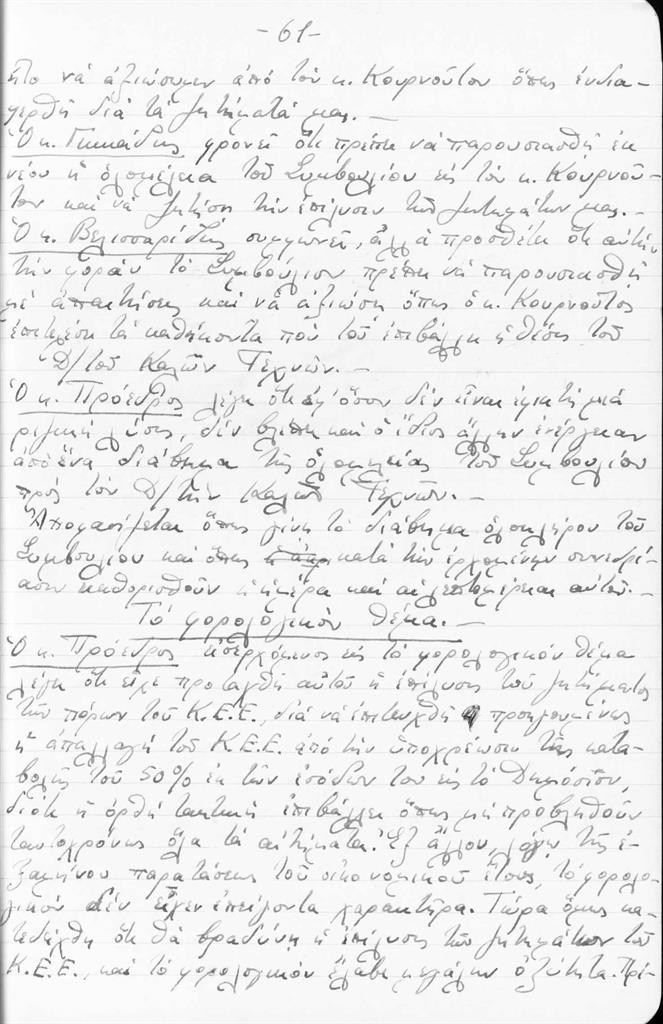 -61-
ἦτο νά ἀξιώσωμεν ἀπό τόν κ. Κουρνοῦτον ὅπως ἐνδια-
φερθῆ διά τά ζητήματά μας.-
Ὁ κ. Γκικάδης φρονεῖ ὅτι πρέπει νά παρουσιασθῆ ἐκ
νέου ἡ ὁλομέλεια τοῦ Συμβουλίου εἰς τόν κ. Κουρνοῦ-
τον καί νά ζητήση τήν ἐπίλυσιν τῶν ζητημάτων μας.-
Ὁ κ. Βελισσαρίδης συμφωνεῖ, ἀλλά προσθέτει ὅτι αὐτήν
τήν φοράν τό Συμβούλιον πρέπει νά παρουσιασθῆ
μέ ἀπαιτήσεις καί νά ἀξιώση ὅπως ὁ κ. Κουρνοῦτος
ἐπιτελέση τά καθήκοντα πού τοῦ ἐπιβάλλει ἡ θέσις τοῦ
Δ/τοῦ Καλῶν Τεχνῶν.-
Ὁ κ. Πρόεδρος λέγει ὅτι ἐφ' ὅσον δέν εἶναι ἐφικτή μιά
ριζική λύσις, δέν βλέπει καί ὁ ἴδιος ἄλλην ἐνέργειαν
ἀπό ἕνα διάβημα τῆς ὁλομελείας τοῦ Συμβουλίου
πρός τόν Δ/τήν Καλῶν Τεχνῶν.-
Ἀποφασίζεται ὅπως γίνη τό διάβημα ὁλοκλήρου τοῦ
Συμβουλίου καί ὅπως κατά τήν ἐρχομένην συνεδρί-
ασιν καθορισθοῦν ἡ ἡμέρα καί αἱ λεπτομέρειαι αὐτοῦ.-
Τό φορολογικόν θέμα.-
Ὁ κ. Πρόεδρος εἰσερχόμενος εἰς τό φορολογικόν θέμα
λέγει ὅτι εἶχε προταχθῆ αὐτοῦ ἡ ἐπίλυσις τοῦ ζητήματος
τῶν πόρων τοῦ Κ.Ε.Ε., διά νά ἐπιτευχθῆ προηγουμένως
ἡ ἀπαλλαγή τοῦ Κ.Ε.Ε. ἀπό τήν ὑποχρέωσιν τῆς κατα-
βολῆς τοῦ 50% ἐκ τῶν ἐσόδων του εἰς τό Δημόσιον,
διότι ἡ ὀρθή τακτική ἐπιβάλλει ὅπως μή προβληθοῦν
ταυτοχρόνως ὅλα τά αἰτήματα. Ἐξ ἄλλου, λόγω τῆς ἑ-
ξαμήνου παρατάσεως τοῦ οἰκονομικοῦ ἔτους, τό φορολο-
γικόν δέν εἶχεν ἐπείγοντα χαρακτῆρα. Τώρα ὅμως κα-
τεδείχθη ὅτι θά βραδύνη ἡ ἐπίλυσις τῶν ζητημάτων τοῦ
Κ.Ε.Ε., καί τό φορολογικόν ἔλαβε μεγάλην ὀξύτητα. Πρέ-